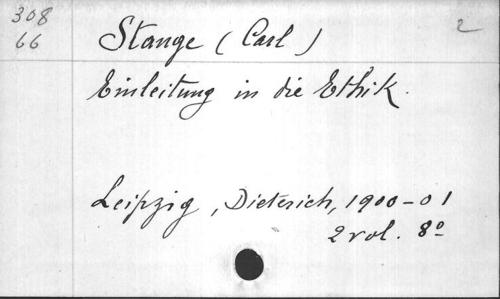 308
66
Stange (Carl)
2
Einleitung in die Ethik.
Leipzig, Dieterich, 1900-01
2 vol. 8º